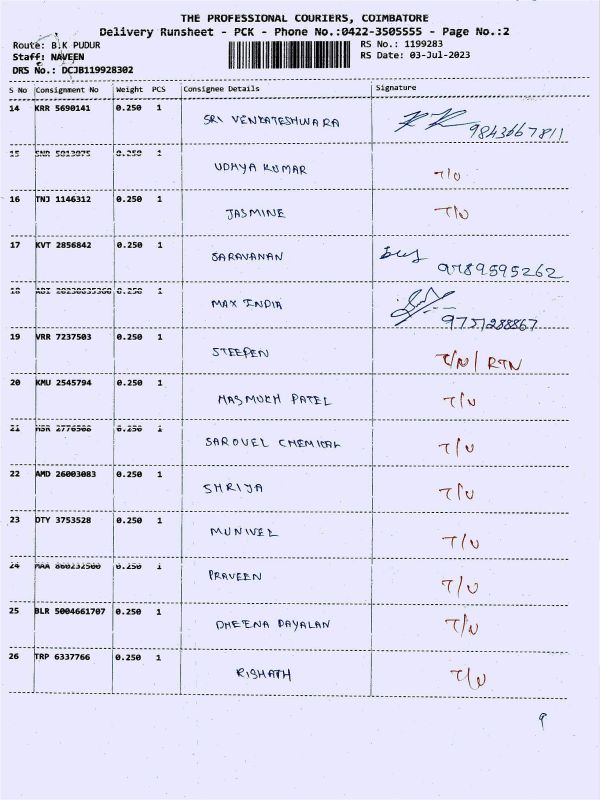 THE PROFESSIONAL COURIERS, COIMBATORE
Delivery Runsheet - PCK - Phone No.:0422-3505555 - Page No.:2
Route: B.K PUDUR RS No.: 1199283
Staff: NAVEEN RS Date: 03-Jul-2023
DRS No.: DCJB119928302
S No Consignment No Weight PCS Consignee Details Signature
14 KRR 5690141 0.250 1 SRI VENKATESHWARA 9843667811
15 0.250 1 UDHYA KUMAR T/U
16 TNJ 1146312 0.250 1 JASMINE T/U
17 KVT 2856842 0.250 1 SARAVANAN 9789595262
18 0.250 1 MAX INDIA 9751288867
19 VRR 7237503 0.250 1 STEEPEN T/N/ RTN
20 KMU 2545794 0.250 1 HASMUKH PATEL T/U
21 0.250 1 SAROVEL CHEMICAL T/U
22 AMD 26003083 0.250 1 SHRIJA T/U
23 OTY 3753528 0.250 1 MUNIVEL T/U
24 0.250 1 PRAVEEN T/U
25 BLR 5004661707 0.250 1 DHEENA DAYALAN T/U
26 TRP 6337766 0.250 1 RISHATH T/U
9